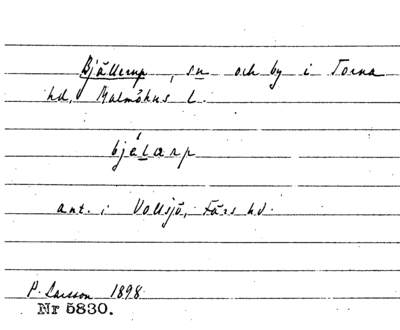 Bjällerup, sn och by i Torna
hd, Malmöhus l.
bjälarp
ant. i Vollsjö, Färs hd.
P. Larsson 1898
Nr 5830.